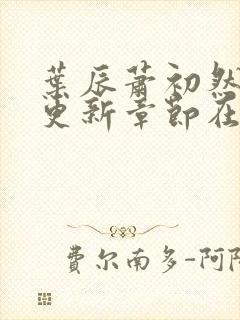 葉辰蕭初然
更新章節在
費尔南多-阿隆